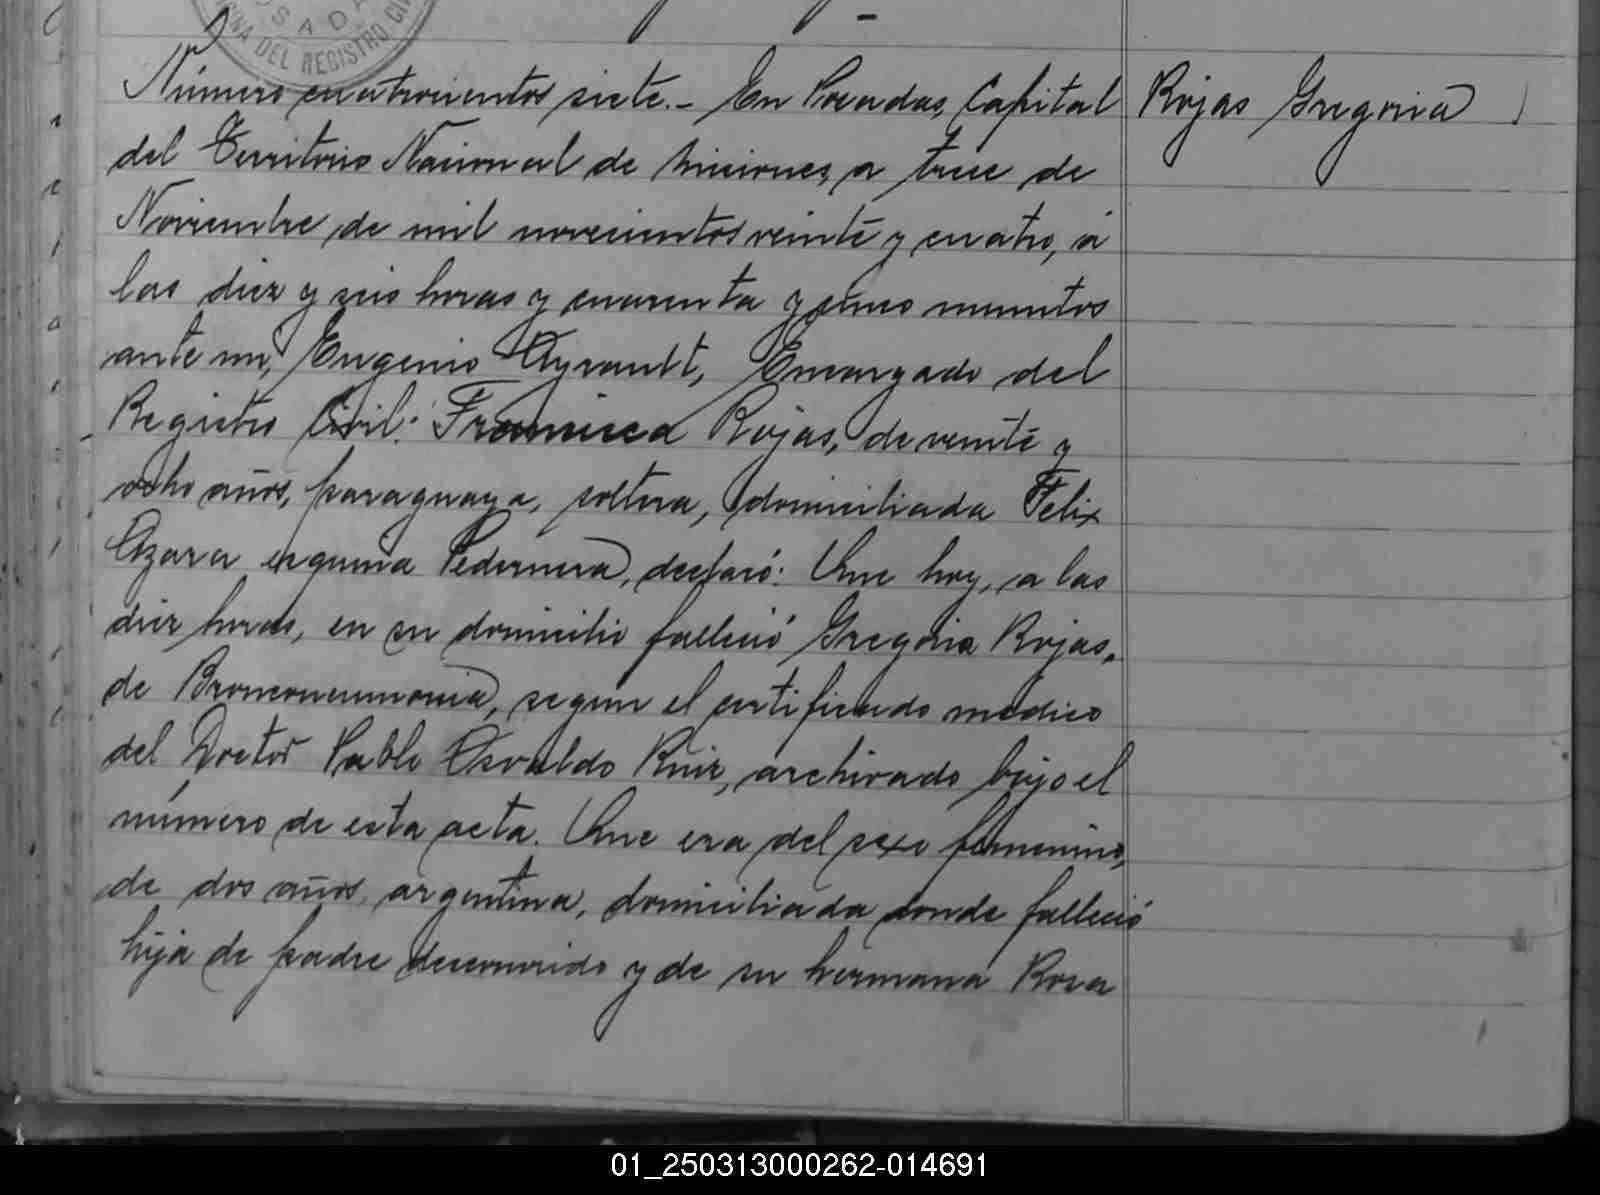 OSADA
INA DEL REGISTRO CIV
Número cuatrocientos siete.- En Posadas, Capital
Rojas Gregoria
del Territorio Nacional de Misiones, a trece de
Noviembre de mil novecientos veinte y cuatro, á
las diez y seis horas y cuarenta y cinco minutos
ante mí, Eugenio Ayrault, Encargado del
Registro Civil: Francisca Rojas, de veinte y
ocho años, paraguaya, soltera, domiciliada Felix
Azara esquina Pedernera, declaró: Que hoy, a las
diez horas, en su domicilio falleció Gregoria Rojas,
de Bronconeumonia, segun el certificado médico
del Doctor Pablo Osvaldo Ruiz, archivado bajo el
número de esta acta. Que era del sexo femenino,
de dos años, argentina, domiciliada donde falleció
hija de padre desconocido y de su hermana Rosa
01_250313000262-014691